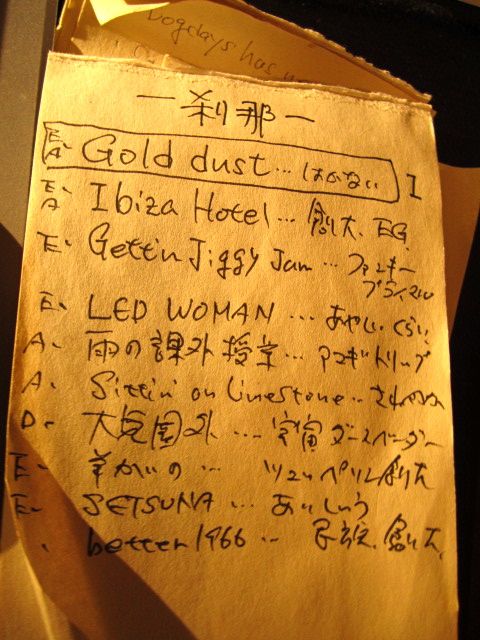 Dogdays has
一刹那一
E. A. Gold dust … はかない I
E. A. Ibiza Hotel … 創大、EG.
E. Gettin Jiggy Jam … ファンキー
E. LED WOMAN … あやしい くらい
A. 雨の課外授業 … アコギトリップ
A. Sittin' on Limestone …
D. 大気圏外 … 宇宙 ダースベーダー
E.
E. SETSUNA … あいしゅう
. better 1966 … 民族、創大、